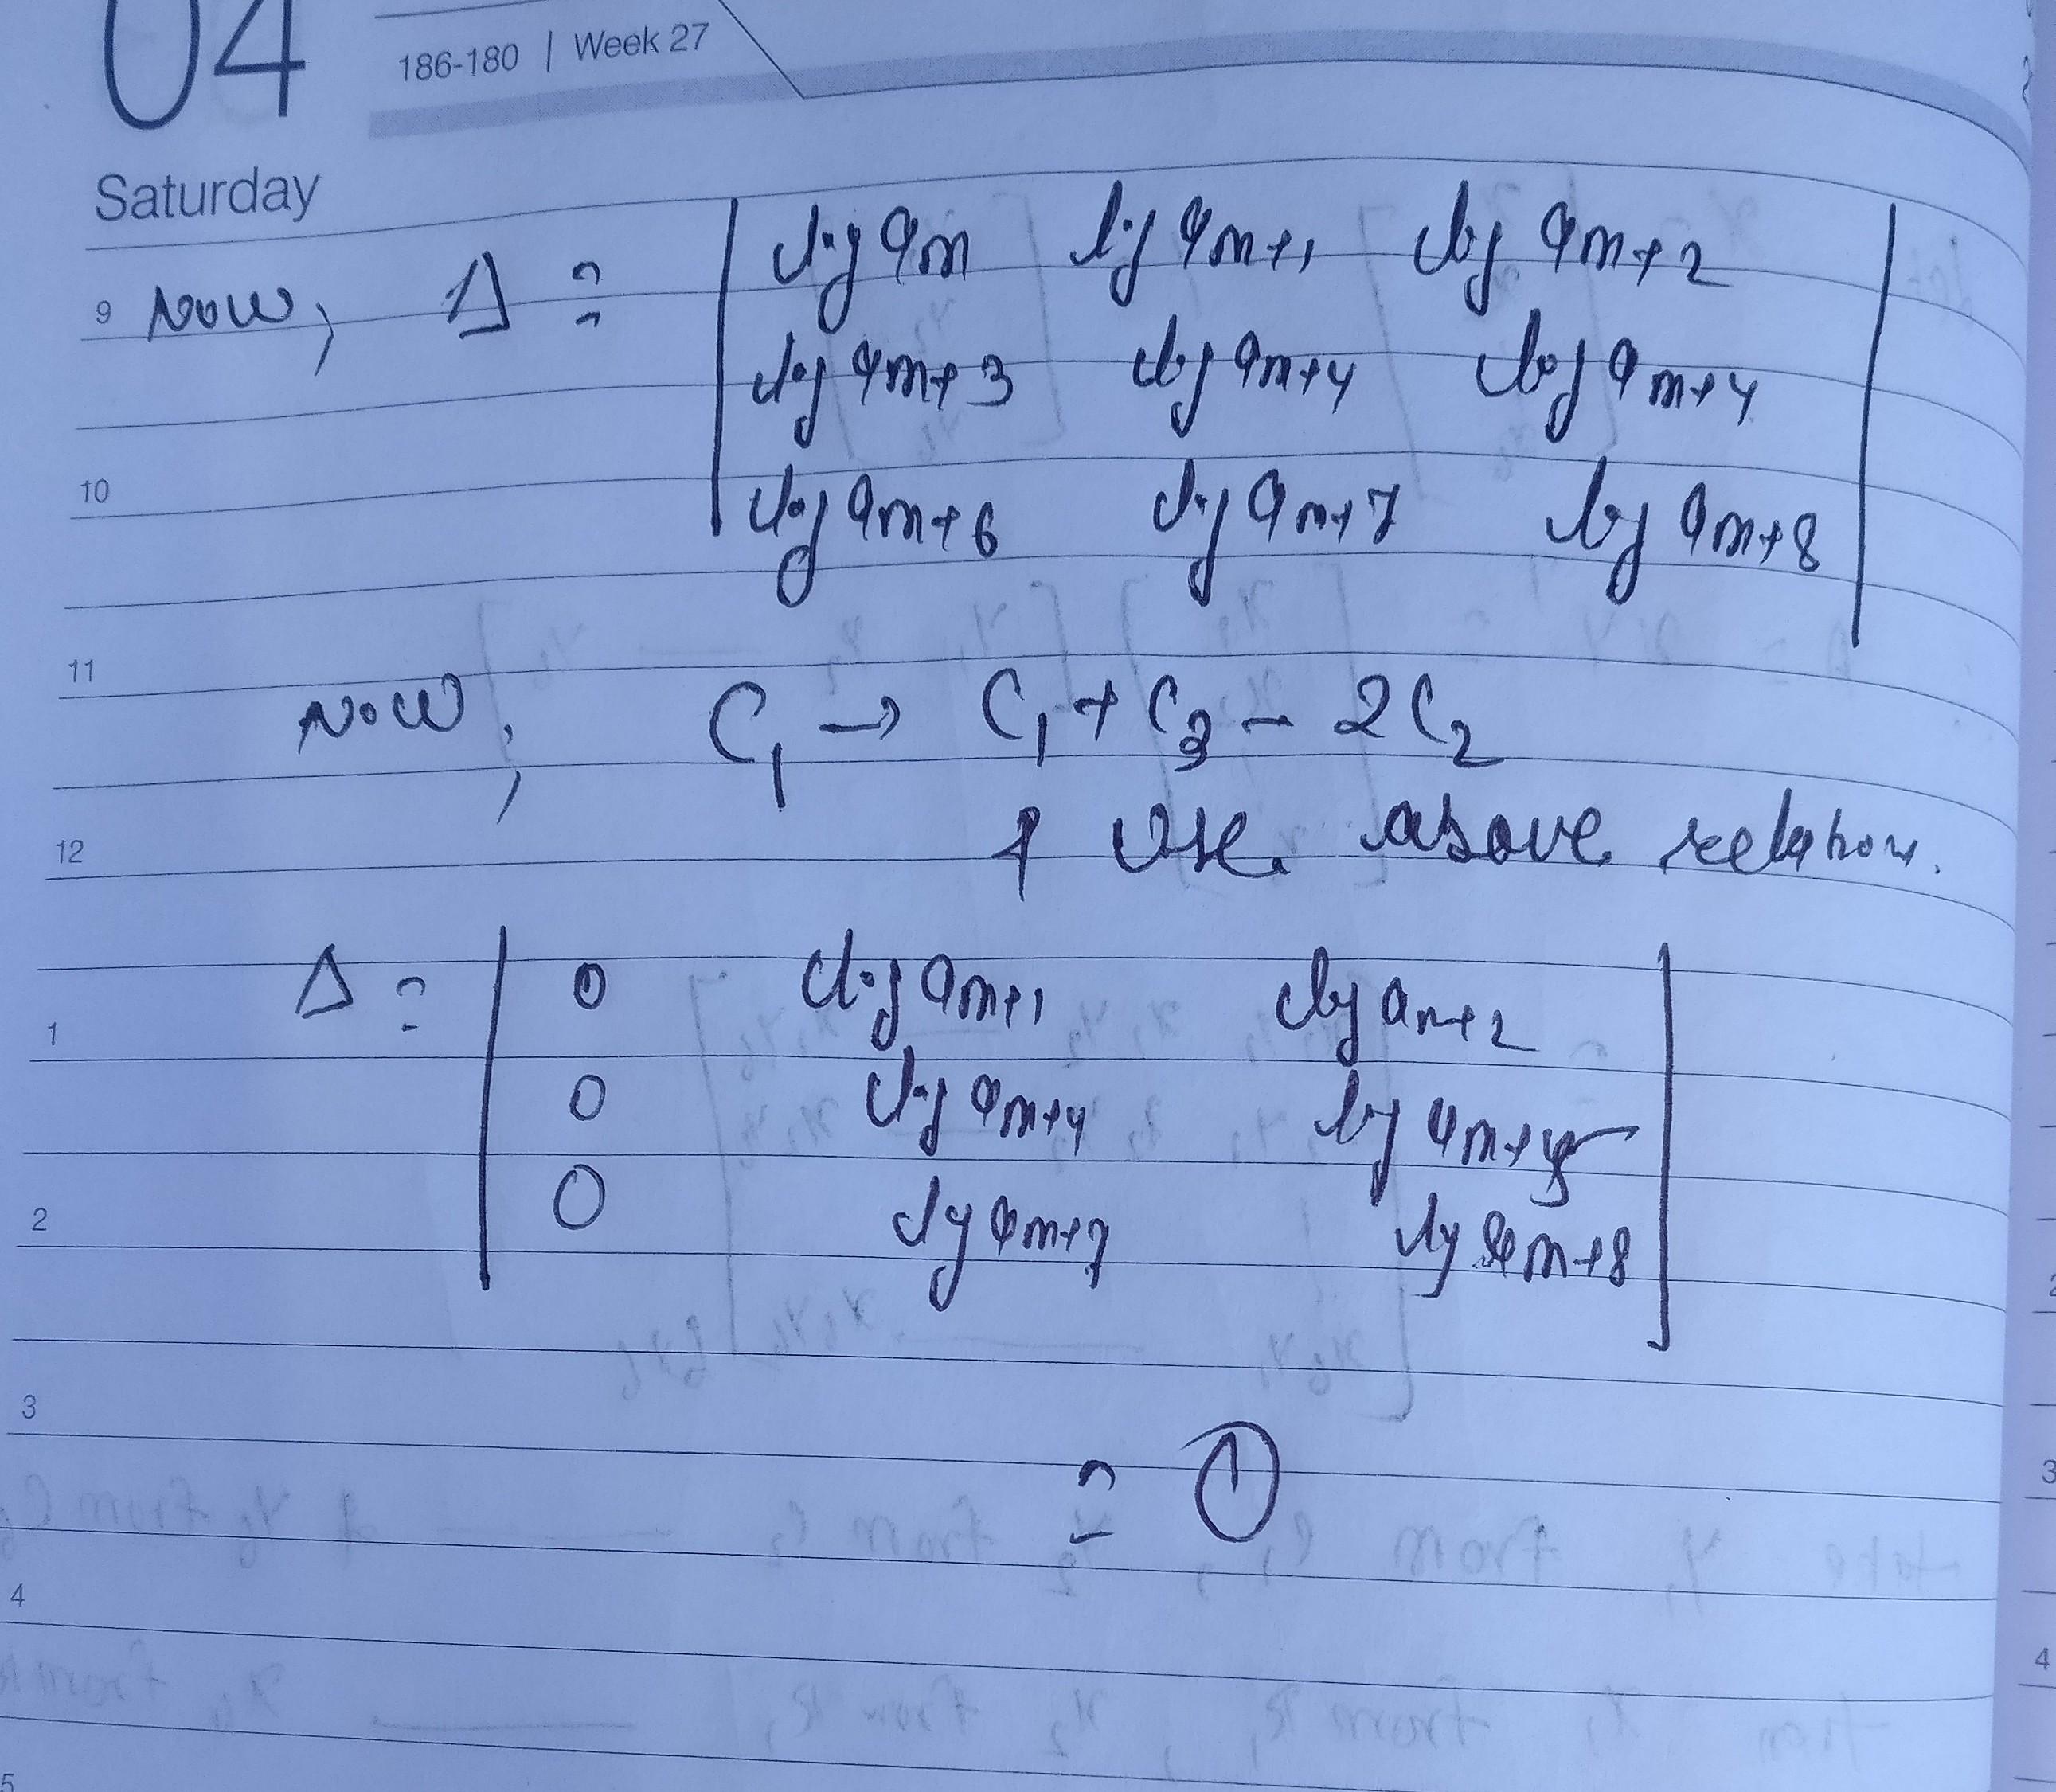 04
186-180 | Week 27
Saturday
9 Now, Δ = | log a_m log a_m+1 log a_m+2 |
| log a_m+3 log a_m+4 log a_m+4 |
10
| log a_m+6 log a_m+7 log a_m+8 |
11
Now, C₁ → C₁ + C₃ - 2C₂
12
& use above relation.
Δ = | 0 log a_m+1 log a_m+2 |
1
| 0 log a_m+4 log a_m+5 |
2
| 0 log a_m+7 log a_m+8 |
3
=
4
5